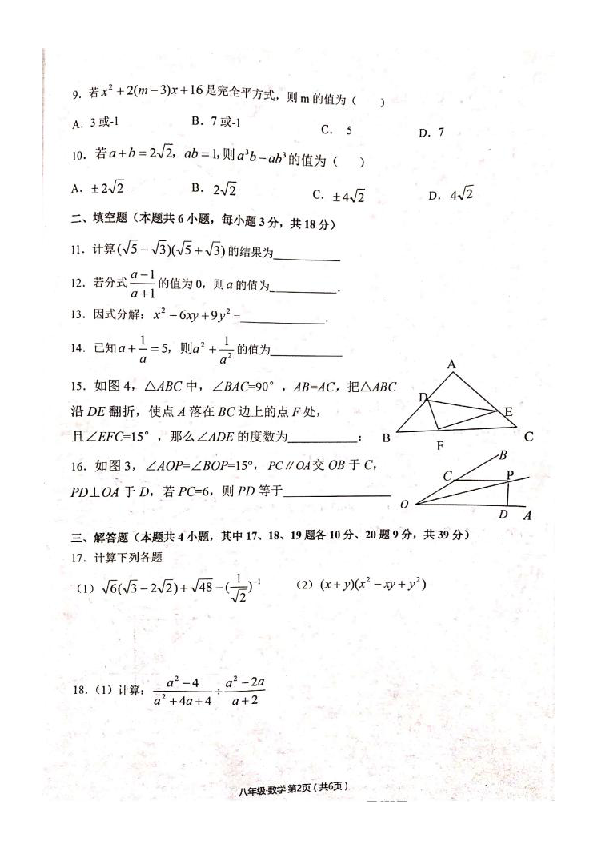 9. 若x² + 2(m − 3)x + 16是完全平方式, 则m的值为( )
A. 3或-1 B. 7或-1 C. 5 D. 7
10. 若a + b = 2√2, ab = 1, 则a³b − ab³的值为( )
A. ±2√2 B. 2√2 C. ±4√2 D. 4√2
二、填空题(本题共6小题, 每小题3分, 共18分)
11. 计算(√5 − √3)(√5 + √3)的结果为__________
12. 若分式(a−1)/(a+1)的值为0, 则a的值为__________.
13. 因式分解: x² − 6xy + 9y² = __________.
14. 已知a + 1/a = 5, 则a² + 1/a²的值为__________
15. 如图4, △ABC中, ∠BAC=90°, AB=AC, 把△ABC
沿DE翻折, 使点A落在BC边上的点F处,
且∠EFC=15°, 那么∠ADE的度数为__________;
A
D
E
B
F
C
16. 如图3, ∠AOP=∠BOP=15°, PC∥OA交OB于C,
PD⊥OA于D, 若PC=6, 则PD等于__________
B
C
P
O
D A
三、解答题(本题共4小题, 其中17、18、19题各10分、20题9分, 共39分)
17. 计算下列各题
(1) √6(√3 − 2√2) + √48 − (1/√2)⁻¹ (2) (x + y)(x² − xy + y²)
18. (1) 计算: (a² − 4)/(a² + 4a + 4) ÷ (a² − 2a)/(a + 2)
八年级·数学 第2页(共6页)